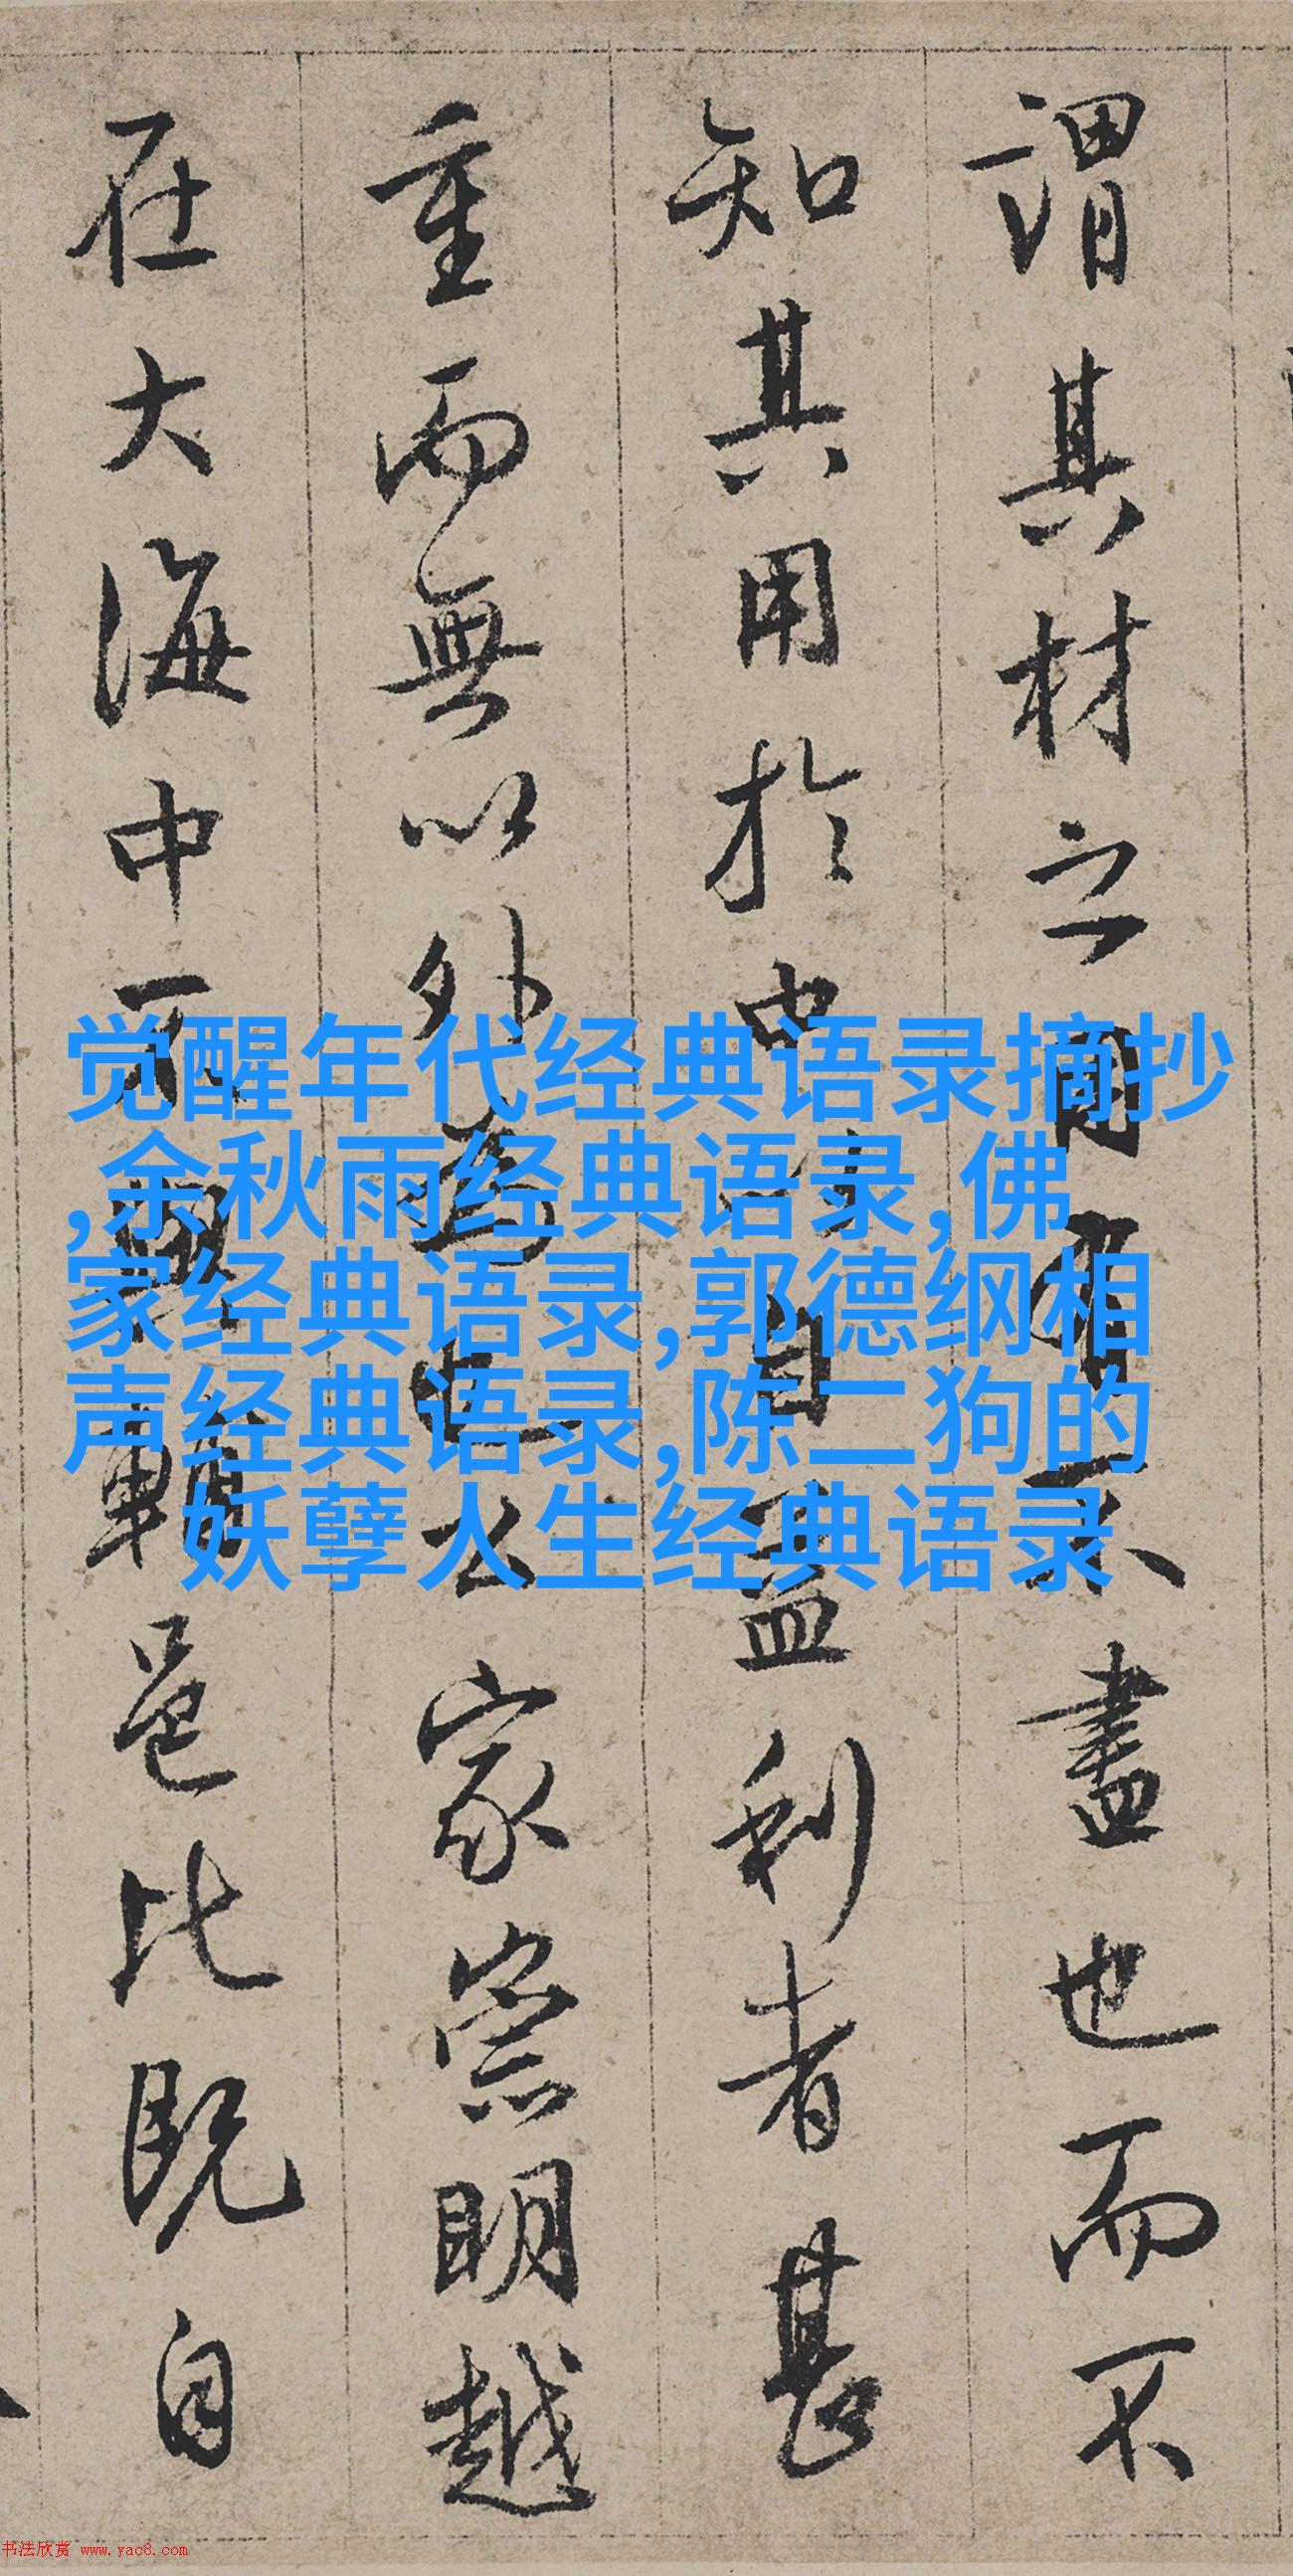 謂其材之用有不盡也而不
知其用於中自益利者甚
重而無以外也公家崇明越
在大海中可邑比既自
觉醒年代经典语录摘抄
,余秋雨经典语录,佛
家经典语录,郭德纲相
声经典语录,陈二狗的
妖孽人生经典语录
书法欣赏 www.yac8.com